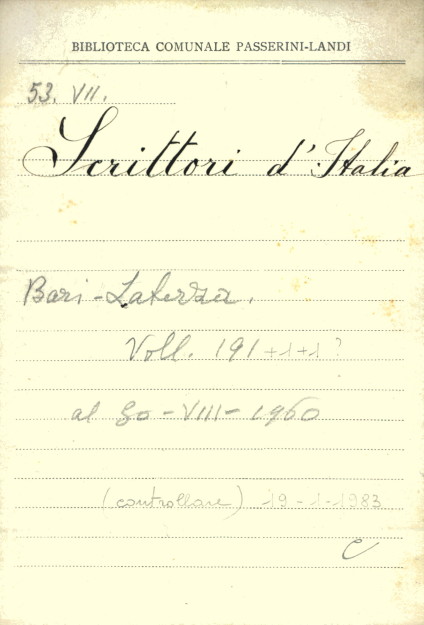 BIBLIOTECA COMUNALE PASSERINI-LANDI
53. VII.
Scrittori d'Italia
Bari - Laterza.
Voll. 191 +1+1 ?
al 30 - VIII - 1960
(controllare) 19 - 1 - 1983
C